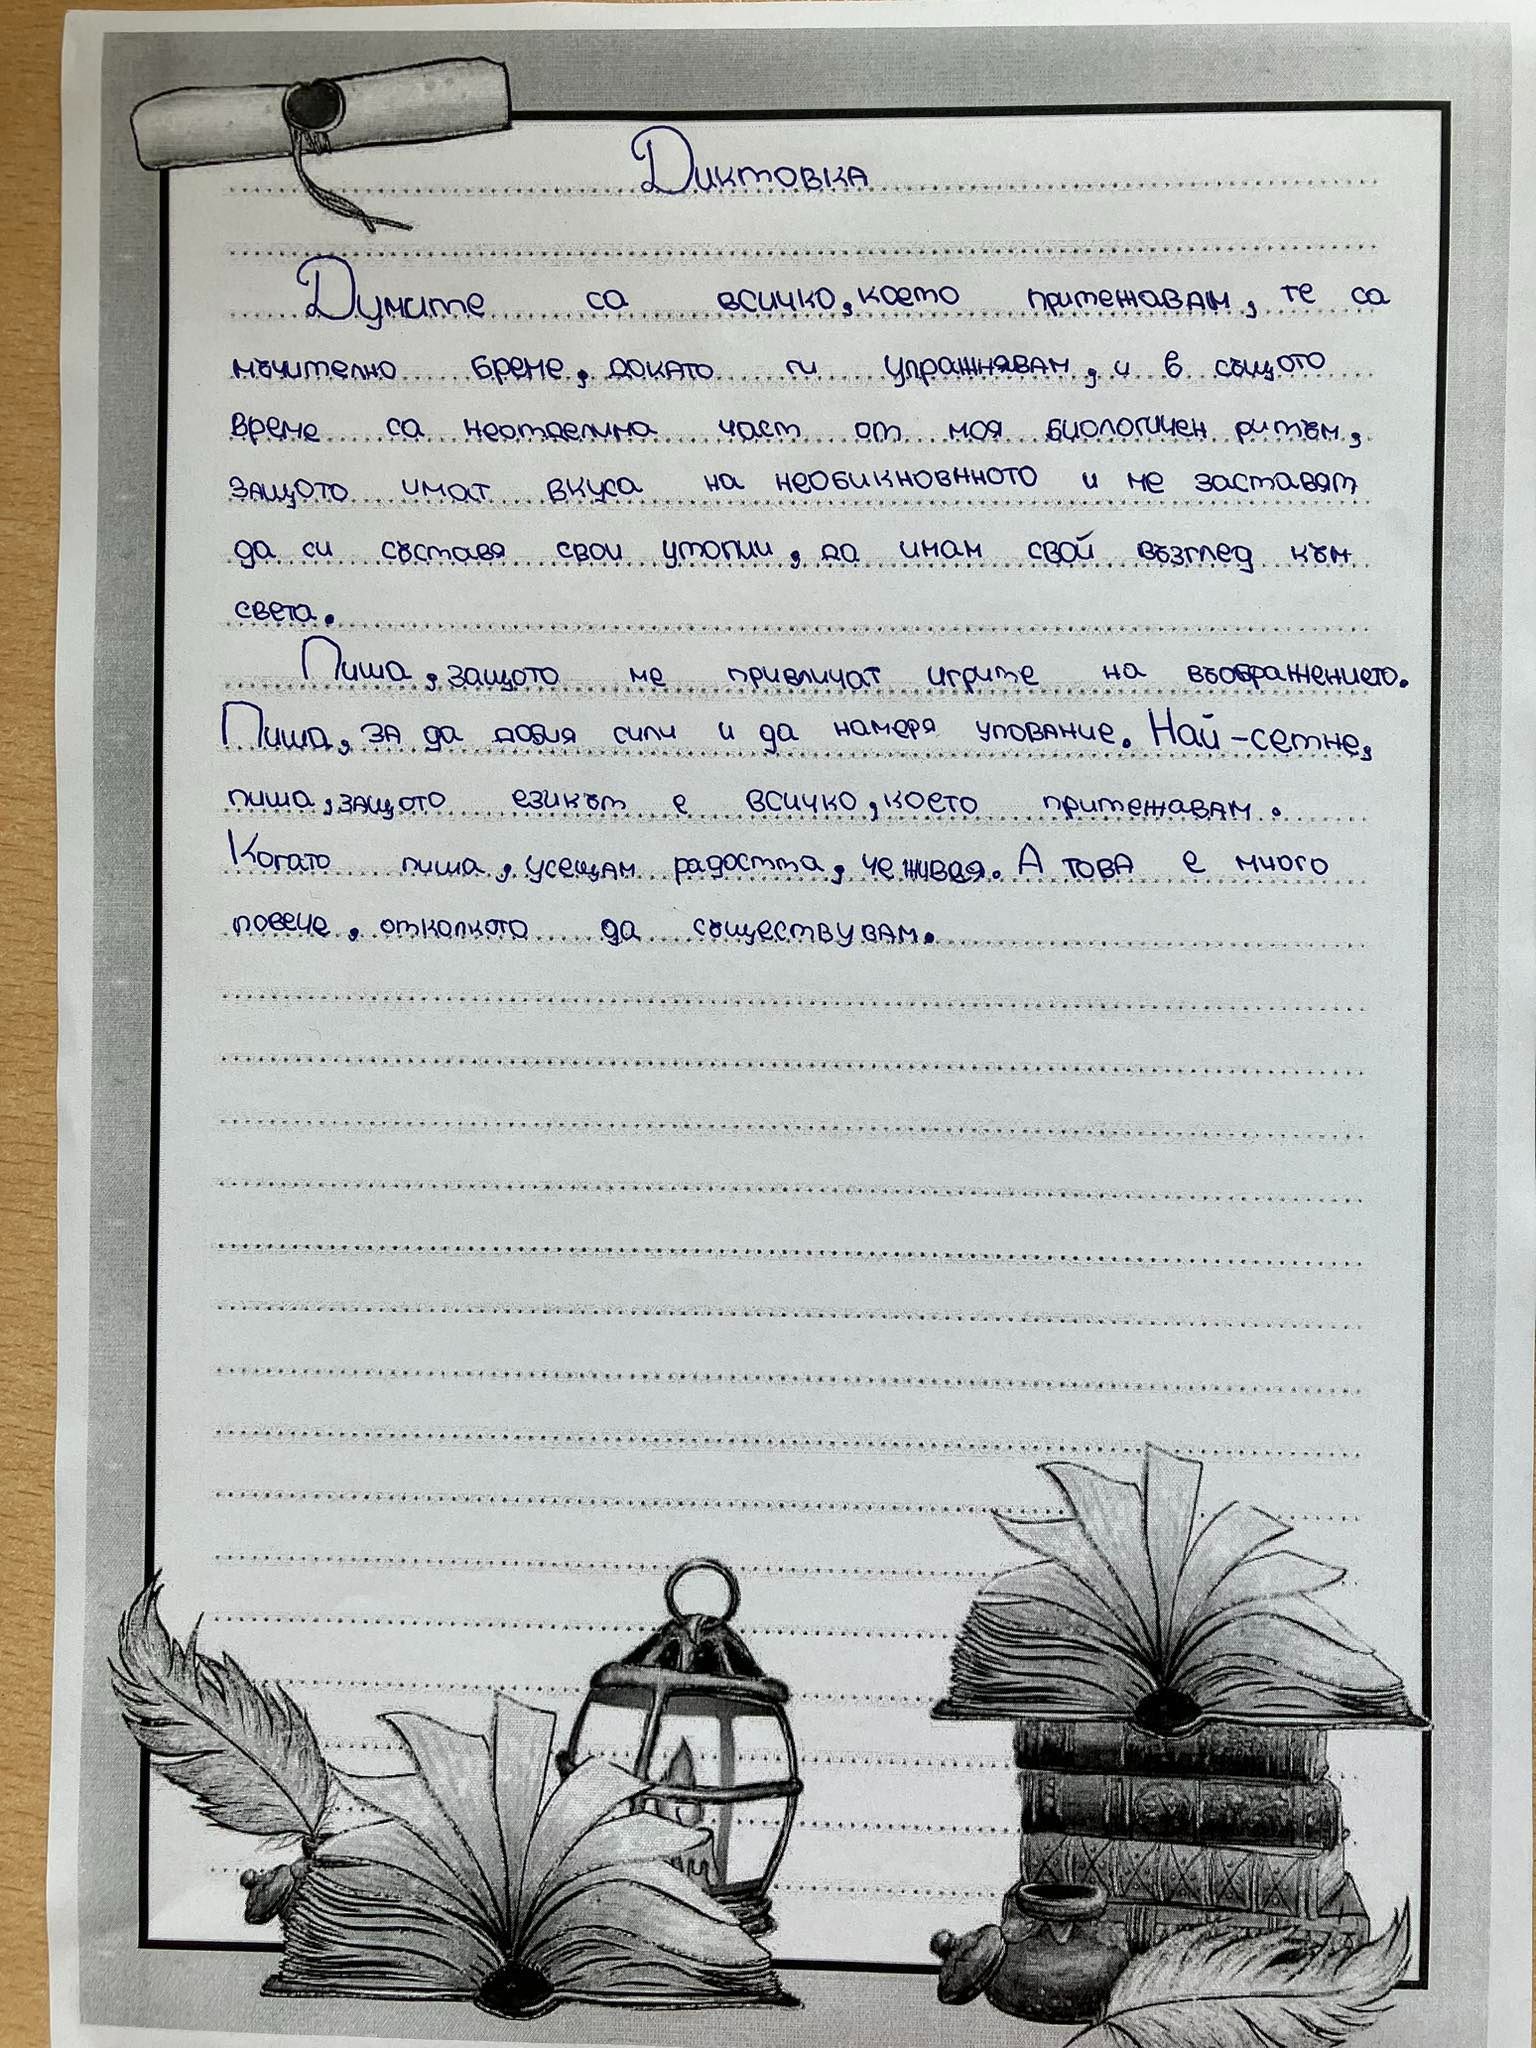 Диктовка
Думите са всичко, което притежавам, те са
мъчително бреме, докато ги упражнявам, и в същото
време са неотделима част от моя биологичен ритъм,
защото имат вкуса на необикновнното и ме заставят
да си съставя свои утопии, да имам свой възглед към
света.
Пиша, защото ме привличат игрите на въображението.
Пиша, за да добия сили и да намеря упование. Най-сетне,
пиша, защото езикът е всичко, което притежавам.
Когато пиша, усещам радостта, че живея. А това е много
повече, отколкото да съществувам.